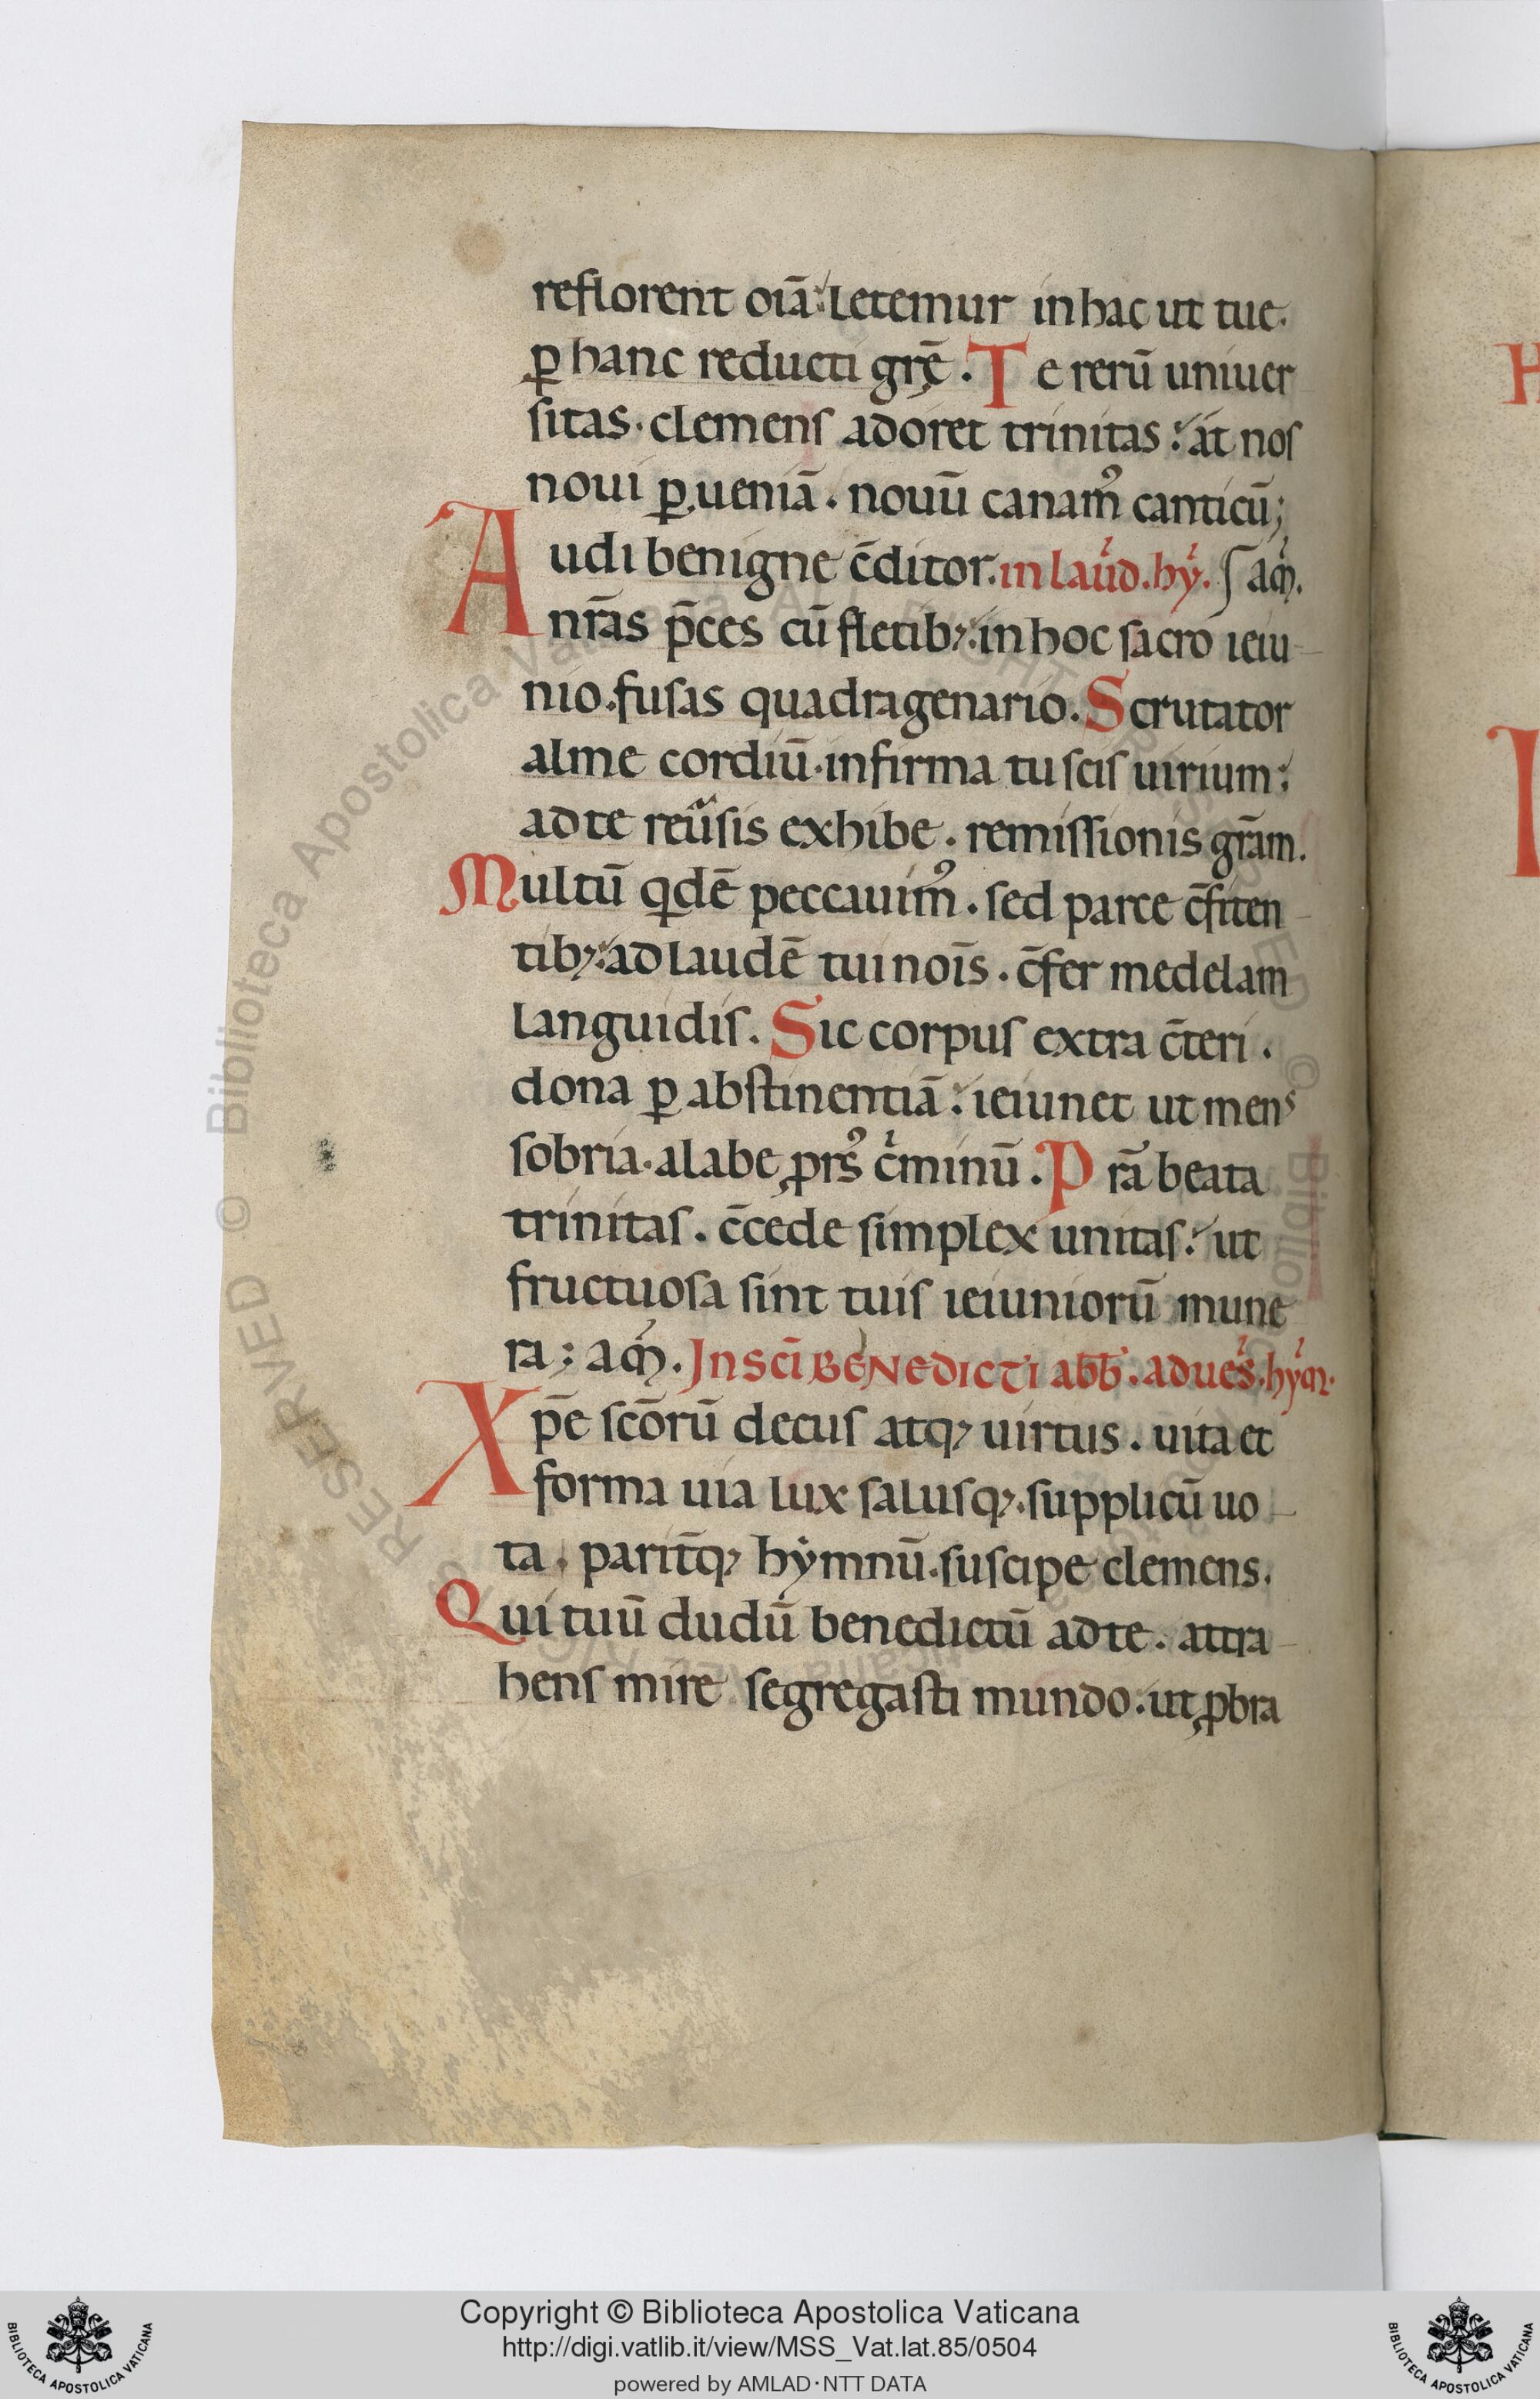 reflorent oīa: Letemur in hac ut tue.
ꝑ hanc reducti grē. Te rerū uniuer
sitas. clemens adoret trinitas: at nos
noui ꝑ ueniā. nouū canamꝰ canticū;
Audi benigne c̄ditor. in laud. hy. am̄.
nr̄as p̄ces cū fletibꝫ: in hoc sacro ieiu
nio. fusas quadragenario. Scrutator
alme cordiū. infirma tu scis uirium:
ad te reūsis exhibe. remissionis gr̄am.
Multū qͥdē peccauimꝰ. sed parce c̄fiten
tibꝫ: ad laudē tui noīs. c̄fer medelam
languidis. Sic corpus extra c̄teri.
dona ꝑ abstinentiā: ieiunet ut mens
sobria. a labe ꝓrsꝰ cͥminū. Pra᷄ beata
trinitas. c̄cede simplex unitas: ut
fructuosa sint tuis ieiuniorū mune
ra; am̄. In sc̄i BENEDICTI abb̄. ad ues. hym.
Xp̄e scōrū decus atqꝫ uirtus. uita et
forma uia lux salusqꝫ. supplicū uo
ta. parit̄qꝫ hymnū. suscipe clemens.
Qui tuū dudū benedictū ad te. attra
hens mire segregasti mundo. ut ꝓbra
Copyright © Biblioteca Apostolica Vaticana
http://digi.vatlib.it/view/MSS_Vat.lat.85/0504
powered by AMLAD·NTT DATA
BIBLIOTECA APOSTOLICA VATICANA
BIBLIOTECA APOSTOLICA VATICANA